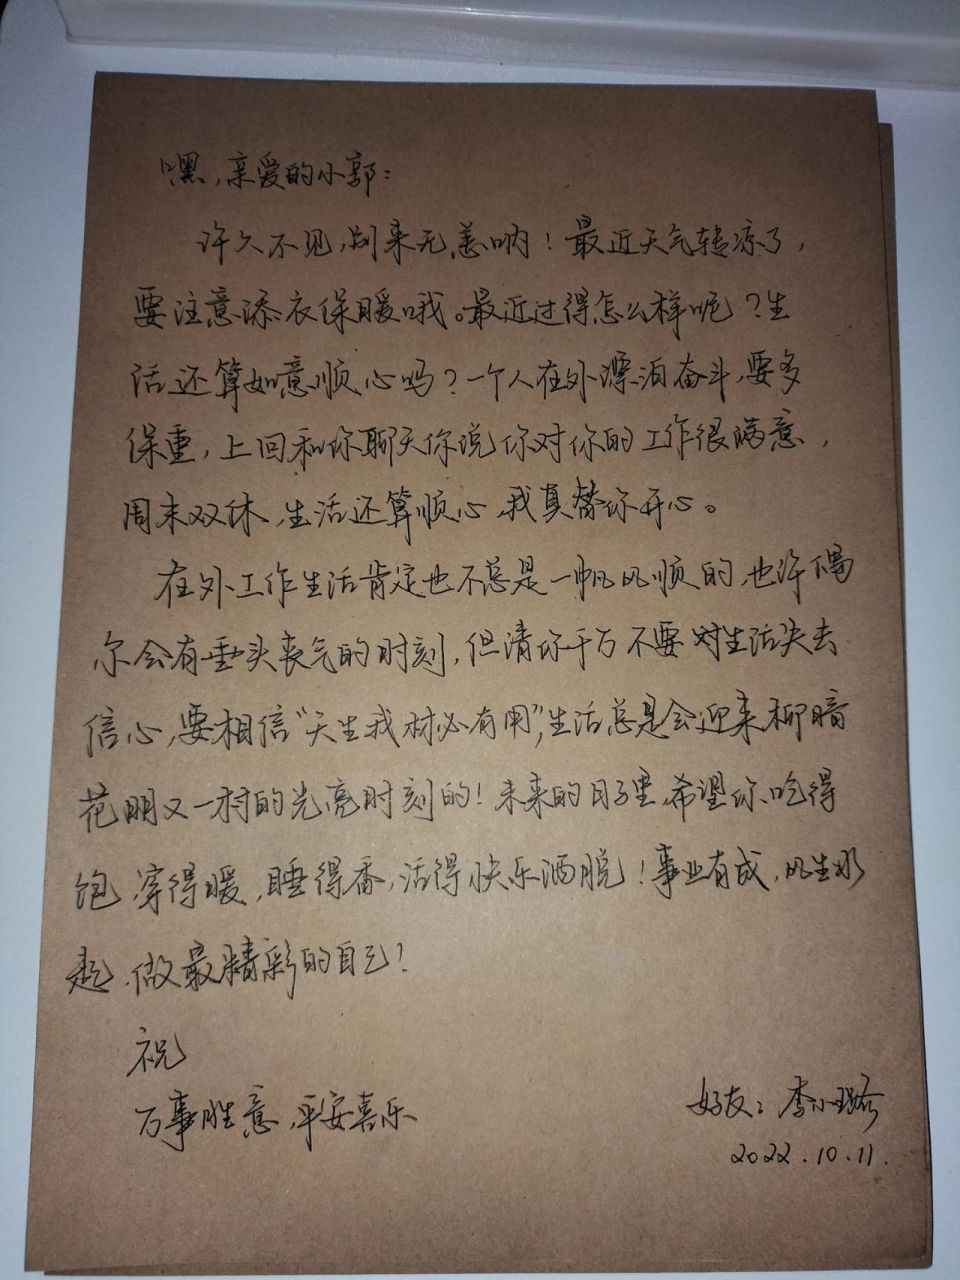 嘿,亲爱的小郭:
许久不见,别来无恙呐!最近天气转凉了,
要注意添衣保暖哦。最近过得怎么样呢?生
活还算如意顺心吗?一个人在外漂泊奋斗,要多
保重,上回和你聊天你说你对你的工作很满意,
周末双休,生活还算顺心,我真替你开心。
在外工作生活肯定也不总是一帆风顺的,也许偶
尔会有垂头丧气的时刻,但请你千万不要对生活失去
信心,要相信“天生我材必有用”,生活总是会迎来柳暗
花明又一村的光亮时刻的!未来的日子里,希望你吃得
饱,穿得暖,睡得香,活得快乐洒脱!事业有成,风生水
起,做最精彩的自己!
祝
万事胜意,平安喜乐
好友:李小璐
2022.10.11.